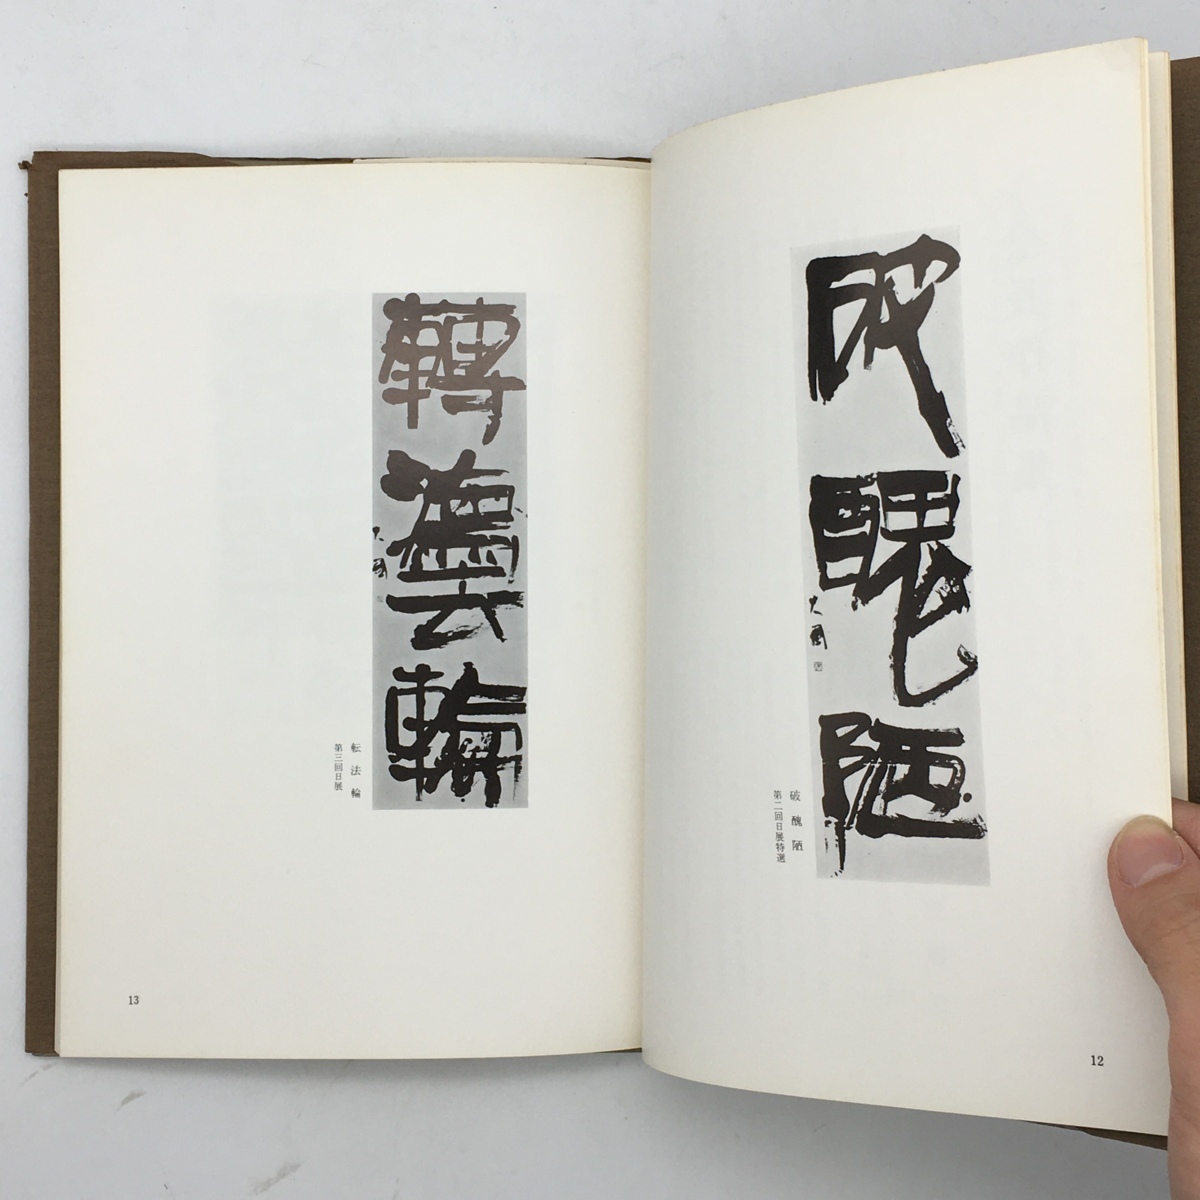 破醜陋
大國
破醜陋
第二回日展特選
12
轉灋輪
大國
転法輪
第三回日展
13